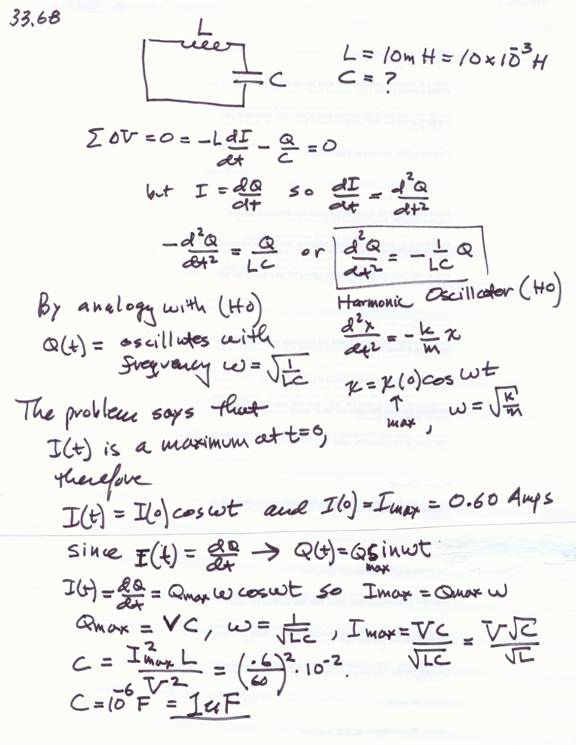 33.68
L
C
L = 10mH = 10×10⁻³H
C = ?
ΣΔV = 0 = -L dI/dt - Q/C = 0
but I = dQ/dt so dI/dt = d²Q/dt²
-d²Q/dt² = Q/LC or d²Q/dt² = -1/LC Q
By analogy with (HO)
Q(t) = oscillates with
frequency ω = √(1/LC)
Harmonic Oscillator (HO)
d²x/dt² = -k/m x
x = x(0) cos ωt
↑
max, ω = √(k/m)
The problem says that
I(t) is a maximum at t=0,
therefore
I(t) = I(0) cos ωt and I(0) = Imax = 0.60 Amps
since I(t) = dQ/dt → Q(t) = Qmax sin ωt
I(t) = dQ/dt = Qmax ω cos ωt so Imax = Qmax ω
Qmax = VC, ω = 1/√LC, Imax = VC/√LC = V√C/√L
C = I²max L/V² = (.6/60)² · 10⁻².
C = 10⁻⁶ F = 1uF